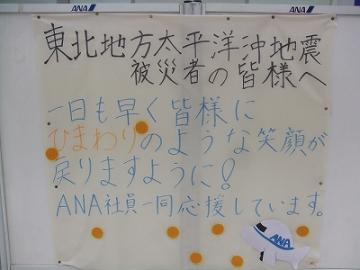 ANA
ANA
東北地方太平洋沖地震
被災者の皆様へ
一日も早く皆様に
ひまわりのような笑顔が
戻りますように!
ANA社員一同応援しています。
ANA